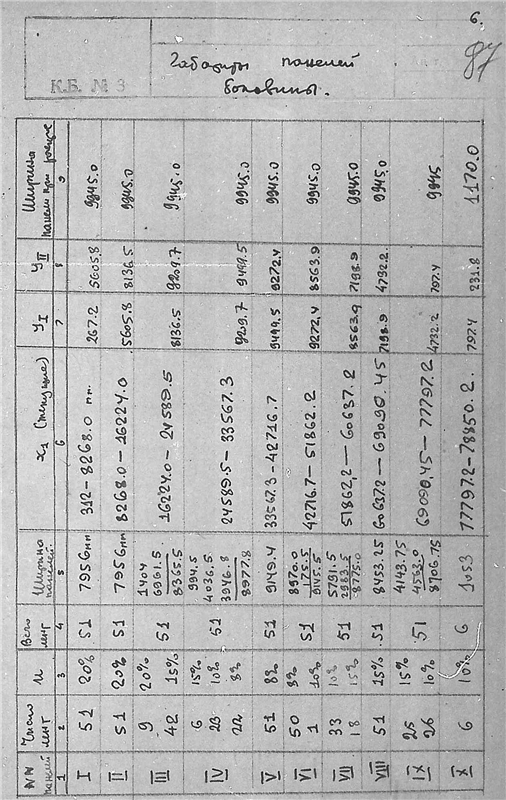 6.
87
К.Б. № 3
Габариты панелей
боковины.
NN панелей | Число лент | И | Всего лент | Ширина панелей | x₁ (текущие) | У I | У II | Ширина панели при раскрое
1 | 2 | 3 | 4 | 5 | 6 | 7 | 8 | 9
I | 51 | 20% | 51 | 7956 мм | 312-8268.0 мм. | 267.2 | 5605.8 | 9945.0
II | 51 | 20% | 51 | 7956 мм | 8268.0 — 16224.0 | 5605.8 | 8136.5 | 9945.0
III | 9 | 20% | 51 | 1404 | 16224.0 — 24589.5 | 8136.5 | 9209.7 | 9945.0
42 | 15% | 6961.5
8365.5
IV | 6 | 15% | 51 | 994.5 | 24589.5 — 33567.3 | 9209.7 | 9499.5 | 9945.0
23 | 10% | 4036.5
22 | 8% | 3946.8
8977.8
V | 51 | 8% | 51 | 9149.4 | 33567.3 - 42716.7 | 9499.5 | 9272.4 | 9945.0
VI | 50 | 8% | 51 | 8970.0 | 42716.7 — 51862.2 | 9272.4 | 8563.9 | 9945.0
1 | 10% | 175.5
9145.5
VII | 33 | 10% | 51 | 5791.5 | 51862,2 — 60637.2 | 8563.9 | 7198.9 | 9945.0
18 | 15% | 2983.5
8775.0
VIII | 51 | 15% | 51 | 8453.25 | 60637.2 — 69090.45 | 7198.9 | 4732.2 | 9945.0
IX | 25 | 15% | 51 | 4143.75 | 69090,45 — 77797.2 | 4732.2 | 797.4 | 9945
26 | 10% | 4563.0
8706.75
X | 6 | 10% | 6 | 1053 | 77797.2-78850.2. | 797.4 | 231.8 | 1170.0